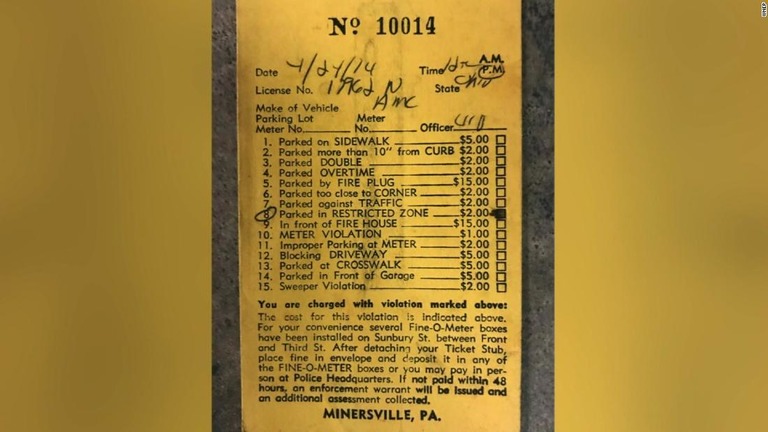 Nº 10014
A.M.
Date 4/24/74 Time P.M.
License No. 1962 N State Ohio
Make of Vehicle AMC
Parking Lot Meter
Meter No. No. Officer
1. Parked on SIDEWALK $5.00
2. Parked more than 10" from CURB $2.00
3. Parked DOUBLE $2.00
4. Parked OVERTIME $2.00
5. Parked by FIRE PLUG $15.00
6. Parked too close to CORNER $2.00
7. Parked against TRAFFIC $2.00
8. Parked in RESTRICTED ZONE $2.00
9. In front of FIRE HOUSE $15.00
10. METER VIOLATION $1.00
11. Improper Parking at METER $2.00
12. Blocking DRIVEWAY $5.00
13. Parked at CROSSWALK $5.00
14. Parked in Front of Garage $5.00
15. Sweeper Violation $2.00
You are charged with violation marked above:
The cost for this violation is indicated above.
For your convenience several Fine-O-Meter boxes
have been installed on Sunbury St. between Front
and Third St. After detaching your Ticket Stub,
place fine in envelope and deposit it in any of
the FINE-O-METER boxes or you may pay in per-
son at Police Headquarters. If not paid within 48
hours, an enforcement warrant will be issued and
an additional assessment collected.
MINERSVILLE, PA.
WNEP